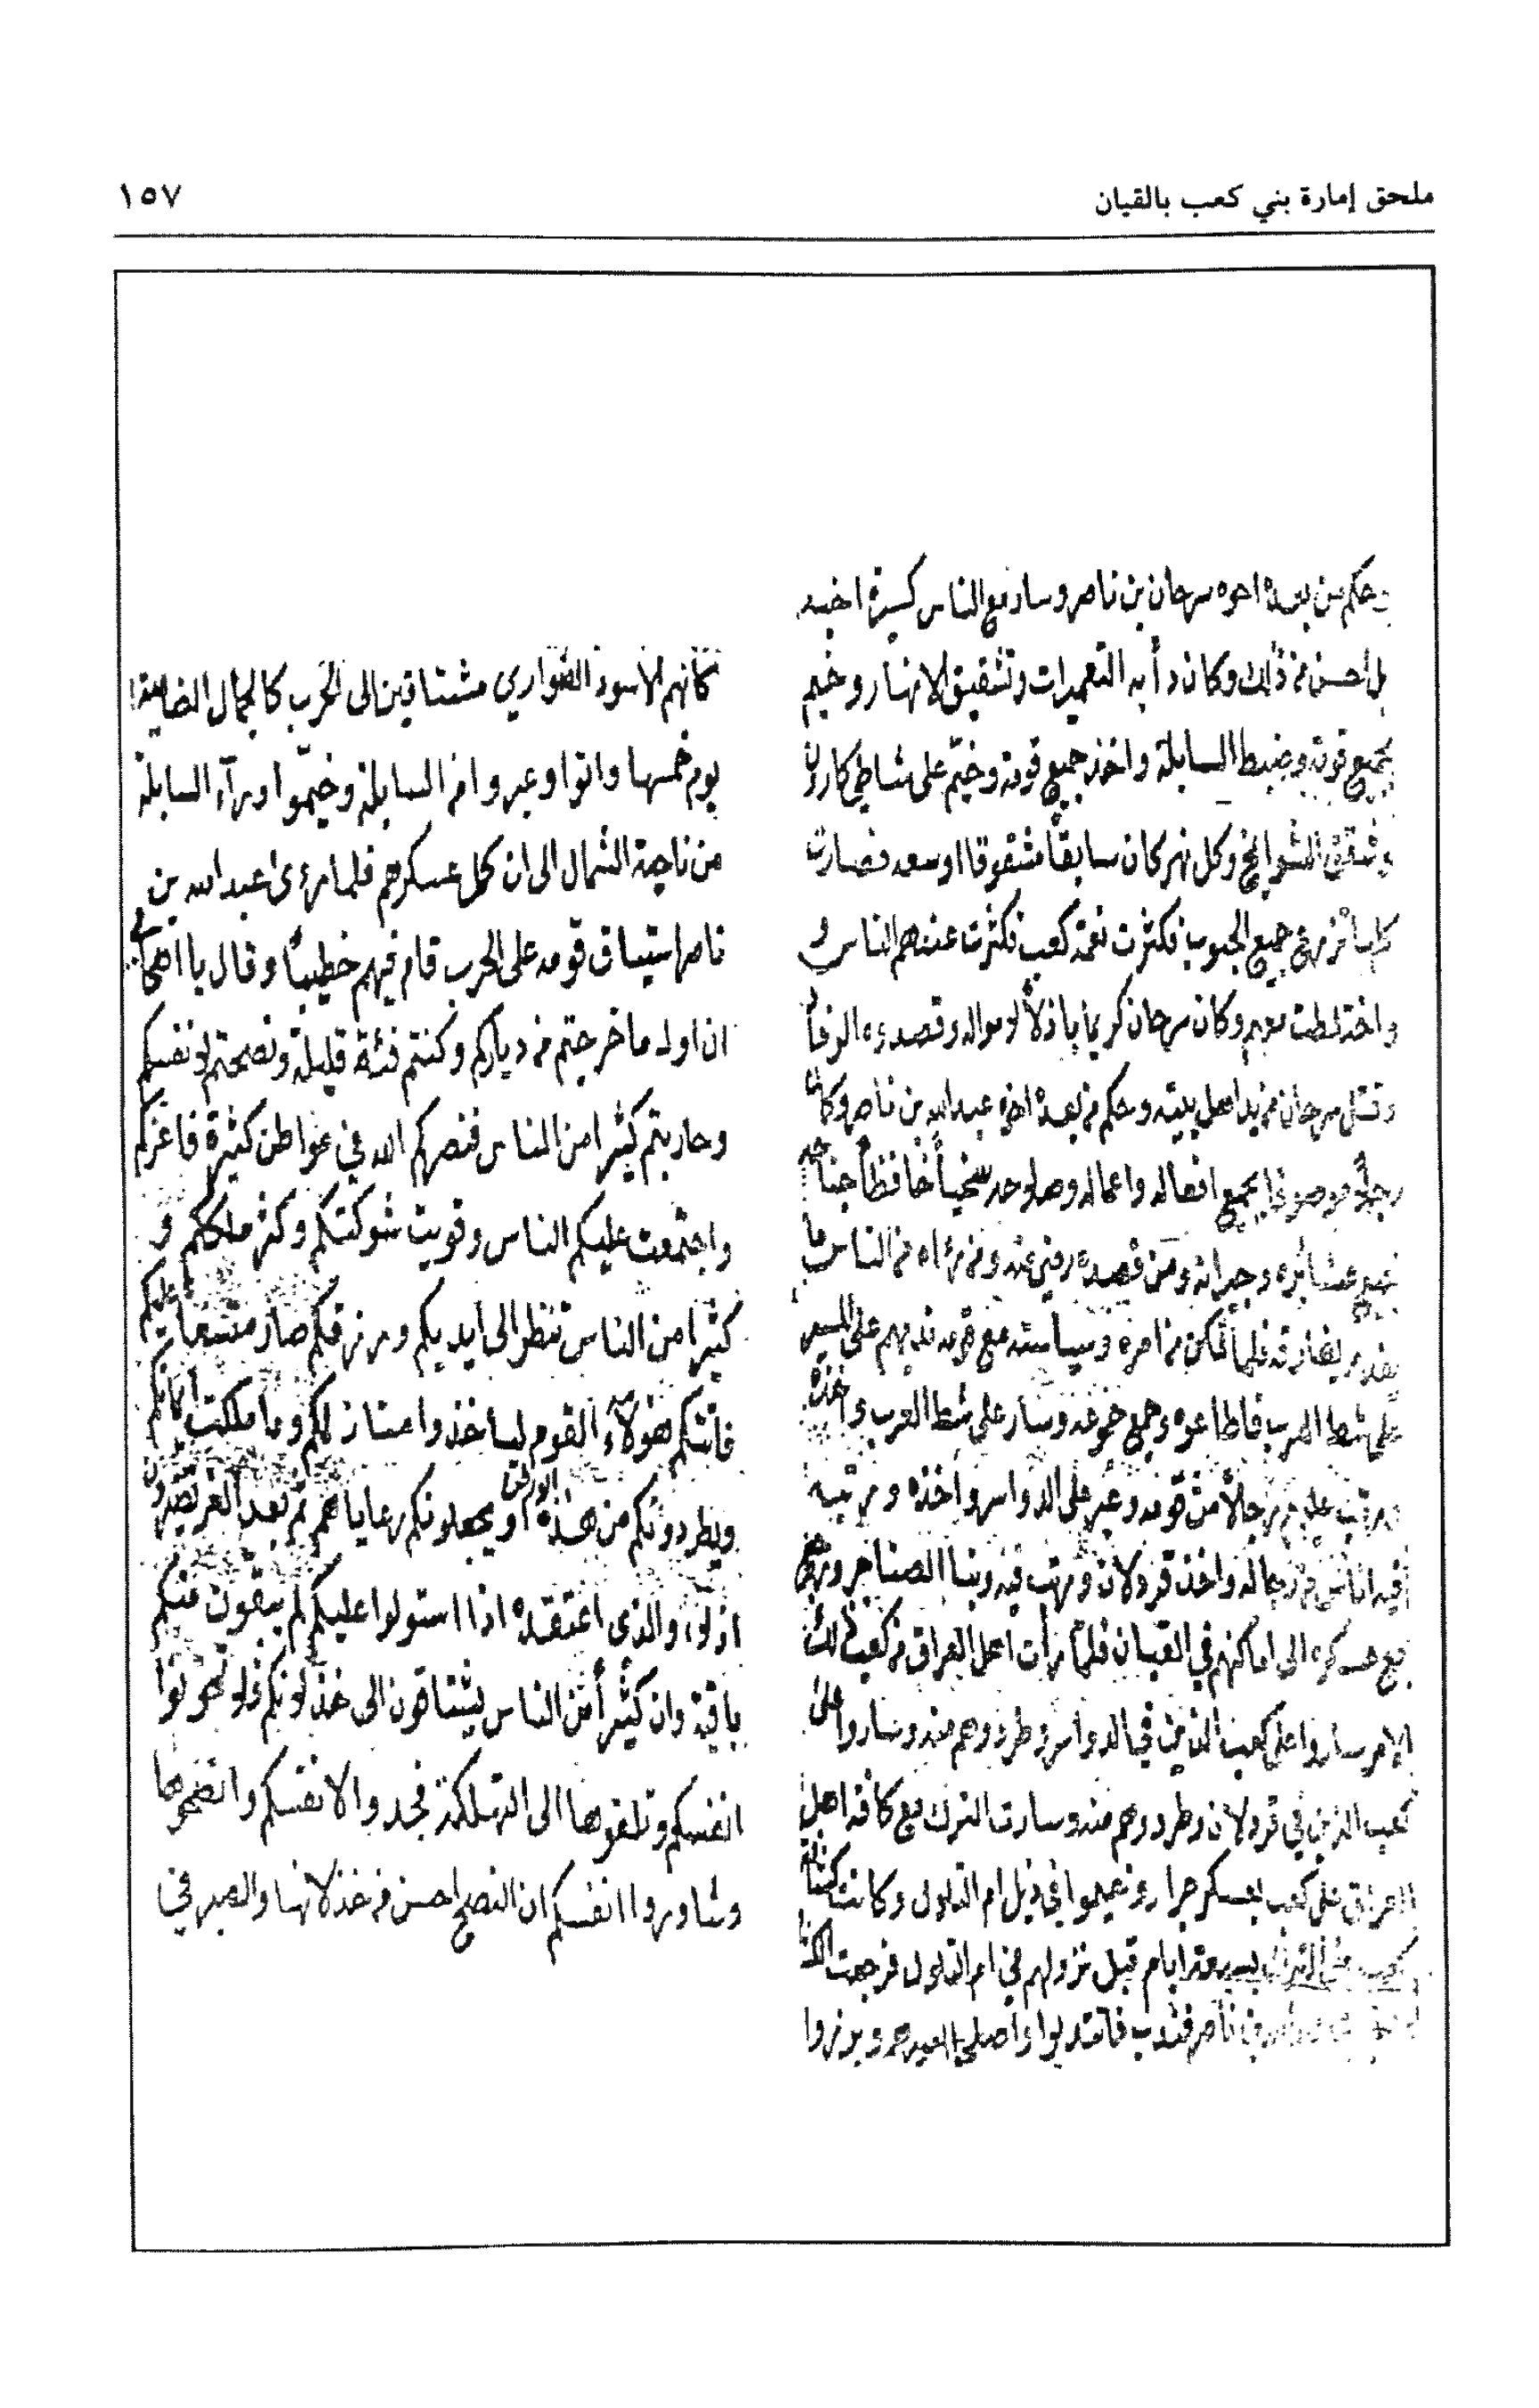 ملحق إمارة بني كعب بالقبان
١٥٧
وحكم من بعده اخوه سرحان بن ناصر وسار مع الناس كسيرة اخيه
بل احسن من ذلك وكان دأبه التعميرات وتشقيق الانهار وخيم
بجميع قوته وضبط السابلة واخذ جميع قومه وخيّم على شاطي كارون
وشقق الشوايخ وكل نهر كان سابقاً مشقوقا اوسعه فصارت
كلها تزرع جميع الحبوب فكثرت نعمة كعب فكثرت عندهم الناس و
واختلطت معهم وكان سرحان كريما باذلاً لامواله وقصدوه الوفاد
وقتل سرحان من يد اهل بيته وحكم من بعده اخيه عبدالله بن ناصر وكان
رجلاً موصوفا بجميع افعاله واعماله سخياً حافظاً
جميع عشائره وجيرانه ومن قصده رضي عنه ومن رءاه من الناس ما
يقدر يفارقه فلما تمكن من امره وسياسته مع قومه ندبهم على المسير
على شط العرب فاطاعوه وجمع جموعه وسار على شط العرب واخذه
ورتب عليهم رجالاً من قومه وعبر على الدواسر واخذه ورتب
فيه اناس من رجاله واخذ قردلان ورتب فيه وبنا الصناجر ورجع
مع عسكره الى اماكنهم في القبان فلما رأت اهل العراق من كعب ذلك
الامر ساروا على كعب الذين في الدواسر وطردوهم منه وساروا على
كعب الذين في قردلان وطردوهم منه وسارت الترك مع كافة اهل
العراق على كعب بعسكر جرار وخيموا في ذيل ام التلول وكانت
بسبعة ايام قبل نزولهم في ام التلول فرجعت
بن ناصر فندب فانتدبوا وبرزوا
كأنهم الاسود الضواري مشتاقين الى الحرب كالجمال الضامية
يوم خمسها واتوا وعبروا من السابلة وخيّموا ورآء السابلة
من ناحية الشمال الى ان كمل عسكرهم فلما رءى عبد الله بن
ناصر اشتياق قومه على الحرب قام فيهم خطيباً وقال يا اصحابي
ان اول ما خرجتم من دياركم وكنتم فئة قليلة ونصحتم لانفسكم
وحاربتم كثيرا من الناس فنصركم الله في مواطن كثيرة فاعزكم
واجتمعت عليكم الناس وقويت شوكتكم وكثر ملككم و
كثيرا من الناس تنظر الى ايديكم ورزقكم صار متسعاً عليكم
فاتتكم هؤلآء القوم لياخذوا وما ملكت ايمانكم
ويطردونكم من هذه او يجعلونكم رعاياهم ثم بعد العز تصيرون
اذلاء والذي اعتقده اذا استولوا عليكم لم يبقون منكم
باقية وان كثيراً من الناس يشتاقون الى خذلانكم فلا تخونوا
انفسكم وتلقوها الى التهلكة فجدوا لانفسكم وانصحوها
وشاوروا انفسكم ان النصح احسن من خذلانها والصبر في